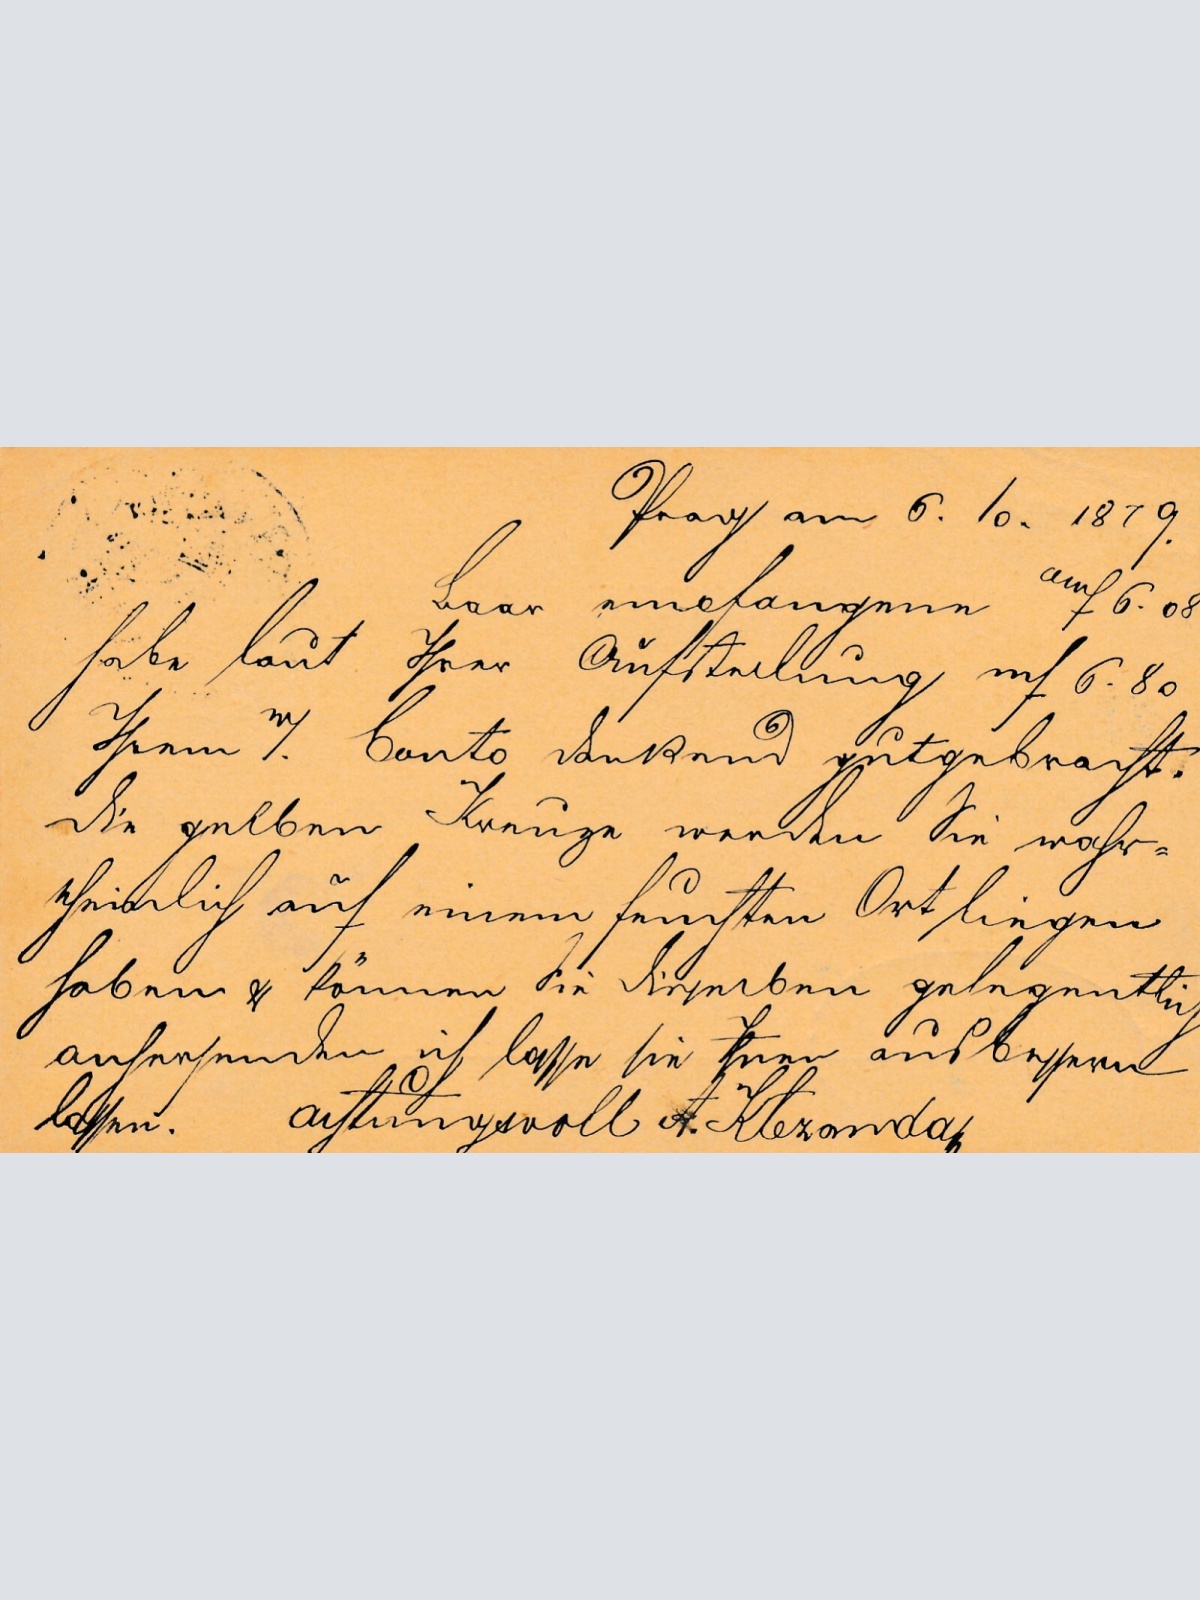 Prag am 6. 10. 1879.
Baar empfangene 6. 08
habe laut Ihrer Aufstellung mf 6. 80
Ihrem w/. Conto dankend gutgebracht.
Die gelben Kreuze werden Sie wahr=
scheinlich auf einem feuchten Ort liegen
haben & können Sie dieselben gelegentlich
anhersenden ich lasse sie Ihnen ausbessern
lassen. Achtungsvoll A.